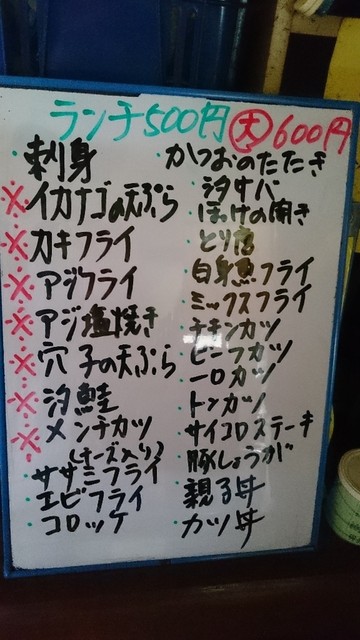 ランチ500円 大 600円
・刺身
※イカナゴの天ぷら
※カキフライ
※アジフライ
※アジ塩焼き
※穴子の天ぷら
※汐鮭
※メンチカツ
(チーズ入り)
・ササミフライ
・エビフライ
・コロッケ
・かつおのたたき
・シメサバ
・ほっけの開き
・とり唐
・白身魚フライ
・ミックスフライ
・チキンカツ
・ビーフカツ
・一口カツ
・トンカツ
・サイコロステーキ
・豚しょうが
・親子丼
・カツ丼